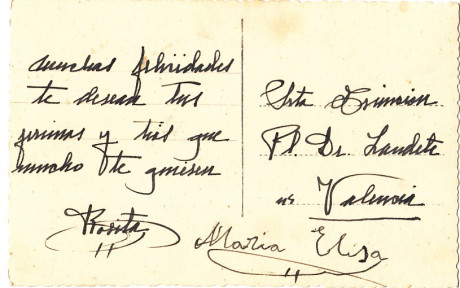 munchas felicidades
te desean tus
primas y tios que
muncho te quieren
Rosita
Maria Elisa
Srta
Pl. Dr Landete
Valencia